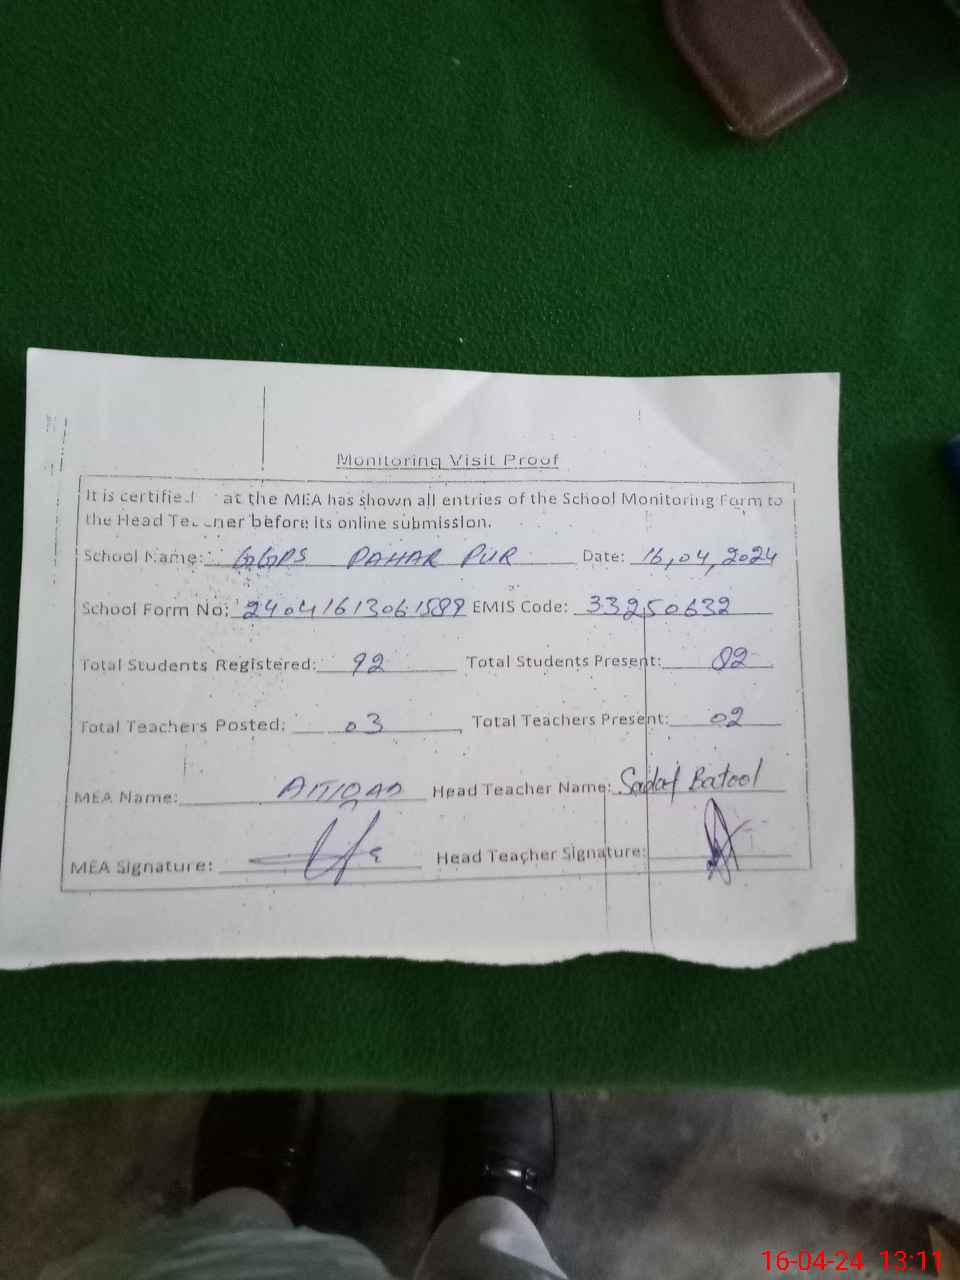 Monitoring Visit Proof
It is certified at the MEA has shown all entries of the School Monitoring Form to
the Head Teacher before its online submission.
School Name: GGPS PAHAR PUR Date: 16,04,2024
School Form No: EMIS Code: 33250632
Total Students Registered: 92 Total Students Present:
Total Teachers Posted: 03 Total Teachers Present: 02
MEA Name: Head Teacher Name: Sadaf Batool
MEA Signature: Head Teacher Signature:
16-04-24 13:11